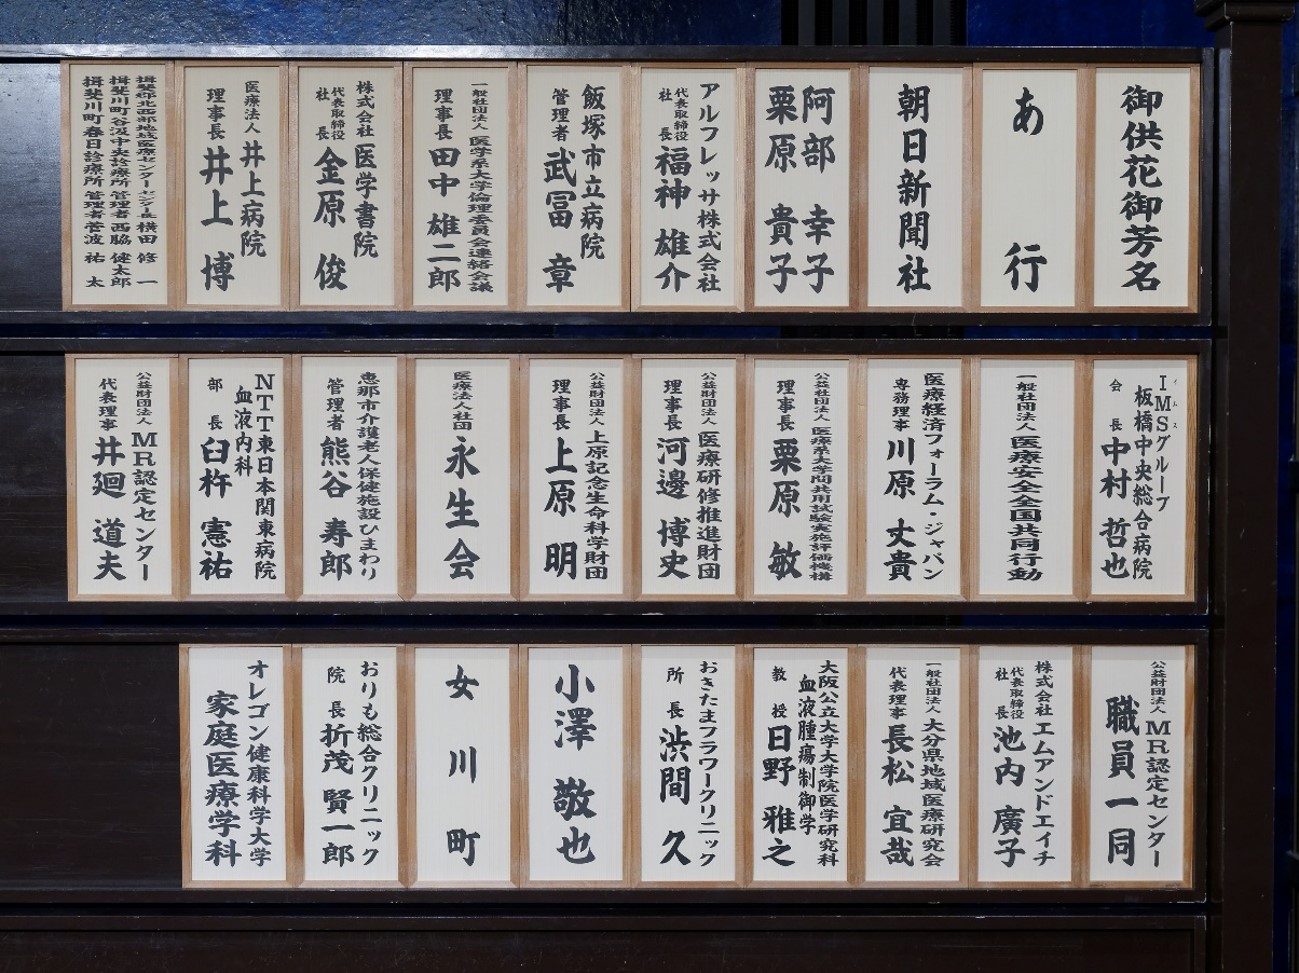 御供花御芳名
あ行
朝日新聞社
阿部 幸子
栗原 貴子
アルフレッサ株式会社
代表取締役
社長
福神 雄介
飯塚市立病院
管理者 武冨 章
一般社団法人 医学系大学倫理委員会連絡会議
理事長 田中 雄二郎
株式会社 医学書院
代表取締役
社長
金原 俊
医療法人 井上病院
理事長 井上 博
揖斐郡北西部地域医療センター センター長 横田 修一
揖斐川町谷汲中央診療所 管理者 西脇 健太郎
揖斐川町春日診療所 管理者 菅波 祐太
イムス
IMSグループ
板橋中央総合病院
会長 中村 哲也
一般社団法人 医療安全全国共同行動
医療経済フォーラム・ジャパン
専務理事 川原 丈貴
公益社団法人 医療系大学間共用試験実施評価機構
理事長 栗原 敏
公益財団法人 医療研修推進財団
理事長 河邊 博史
公益財団法人 上原記念生命科学財団
理事長 上原 明
医療法人社団 永生会
恵那市介護老人保健施設ひまわり
管理者 熊谷 寿郎
NTT東日本関東病院
血液内科
部長 臼杵 憲祐
公益財団法人 MR認定センター
代表理事 井廻 道夫
公益財団法人 MR認定センター
職員一同
株式会社 エムアンドエイチ
代表取締役
社長
池内 廣子
一般社団法人 大分県地域医療研究会
代表理事 長松 宜哉
大阪公立大学大学院医学研究科
血液腫瘍制御学
教授 日野 雅之
おきたまフラワークリニック
所長 渋間 久
小澤 敬也
女川町
おりも総合クリニック
院長 折茂 賢一郎
オレゴン健康科学大学
家庭医療学科